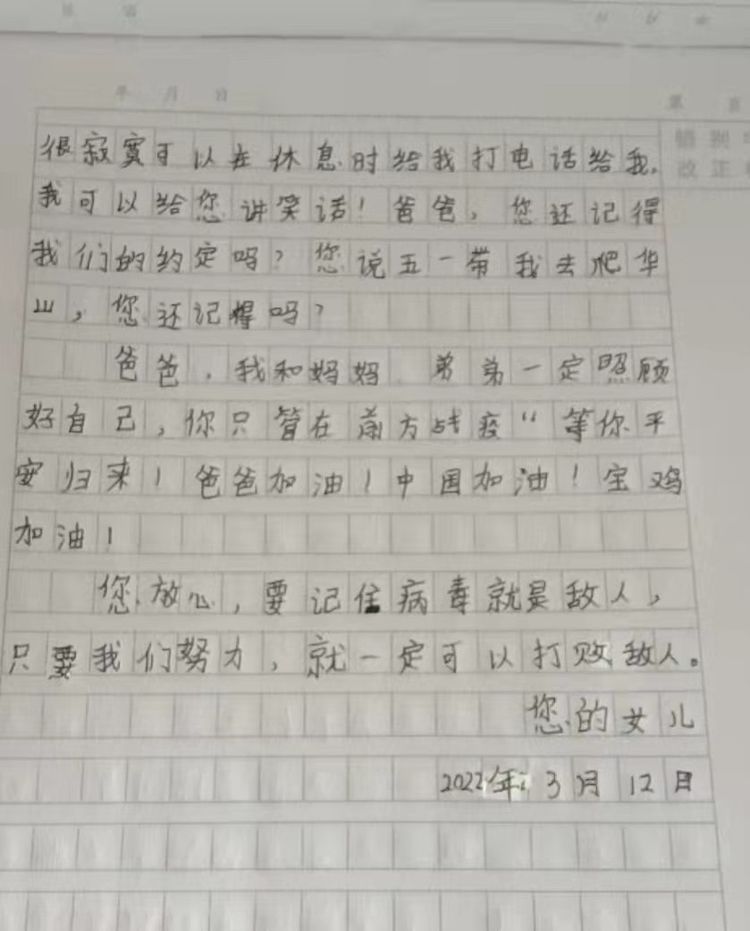 年 月 日
第 页
错别
改正
很寂寞可以在休息时给我打电话给我,
我可以给您讲笑话!爸爸,您还记得
我们的约定吗?您说五一带我去爬华
山,您还记得吗?
爸爸,我和妈妈 弟弟一定照顾
好自己,你只管在前方战疫“等你平
安归来!爸爸加油!中国加油!宝鸡
加油!
您放心,要记住病毒就是敌人,
只要我们努力,就一定可以打败敌人。
您的女儿
2022年 3月12日